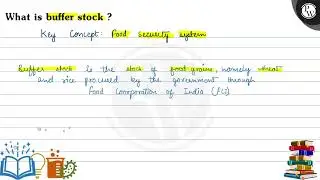 What is buffer stock ?
Key Concept: Food security system
Buffer stock is the stock of food grains, namely wheat
and rice procured by the government through
Food Corporation of India (FCI)